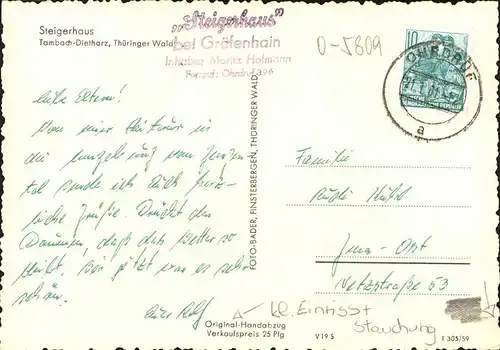 Steigerhaus
Tambach-Dietharz, Thüringer Wald
„Steigerhaus"
bei Gräfenhain
Inhaber Moritz Hofmann
Fernruf: Ohrdruf 396
O-5809
10
OHRDRUF
a
Liebe Eltern!
Von einer Skitour in
die Umgebung von
tal sende ich Euch herz-
liche Grüße. Drückt den
Daumen, daß das Wetter so
bleibt. Bis jetzt war es sehr
schön.
Euer Rolf
FOTO-BADER, FINSTERBERGEN, THÜRINGER WALD
Familie
Jena-Ost
Netzstraße 53
kl. Einrisst
Stauchung
Original-Handabzug
Verkaufspreis 25 Pfg
V 19 5
T 305/59